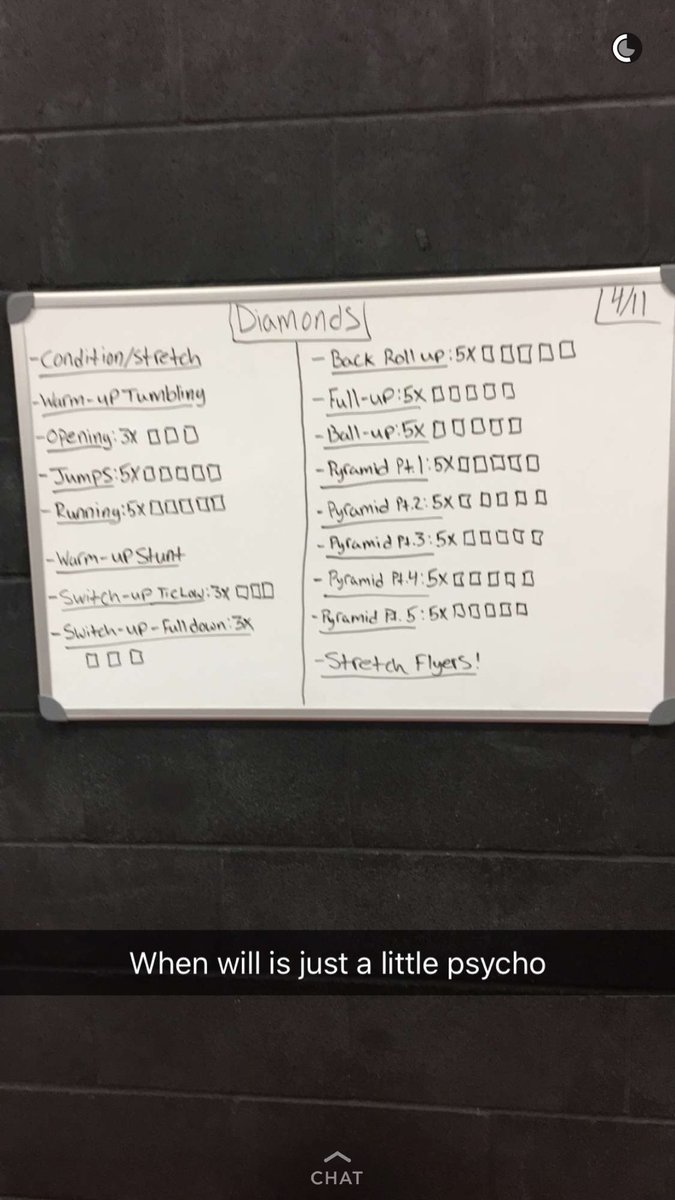 Diamonds
4/11
-Condition/stretch
-Warm-up Tumbling
-Opening: 3x □ □ □
-Jumps: 5x □ □ □ □ □
-Running: 5x □ □ □ □ □
-Warm-up Stunt
-Switch-up Tic Low: 3x □ □ □
-Switch-up-Full down: 3x
□ □ □
-Back Roll up: 5x □ □ □ □ □
-Full-up: 5x □ □ □ □ □
-Ball-up: 5x □ □ □ □ □
-Pyramid Pt.1: 5x □ □ □ □ □
-Pyramid Pt.2: 5x □ □ □ □ □
-Pyramid Pt.3: 5x □ □ □ □ □
-Pyramid Pt.4: 5x □ □ □ □ □
-Pyramid Pt. 5: 5x □ □ □ □ □
-Stretch Flyers!
When will is just a little psycho
CHAT